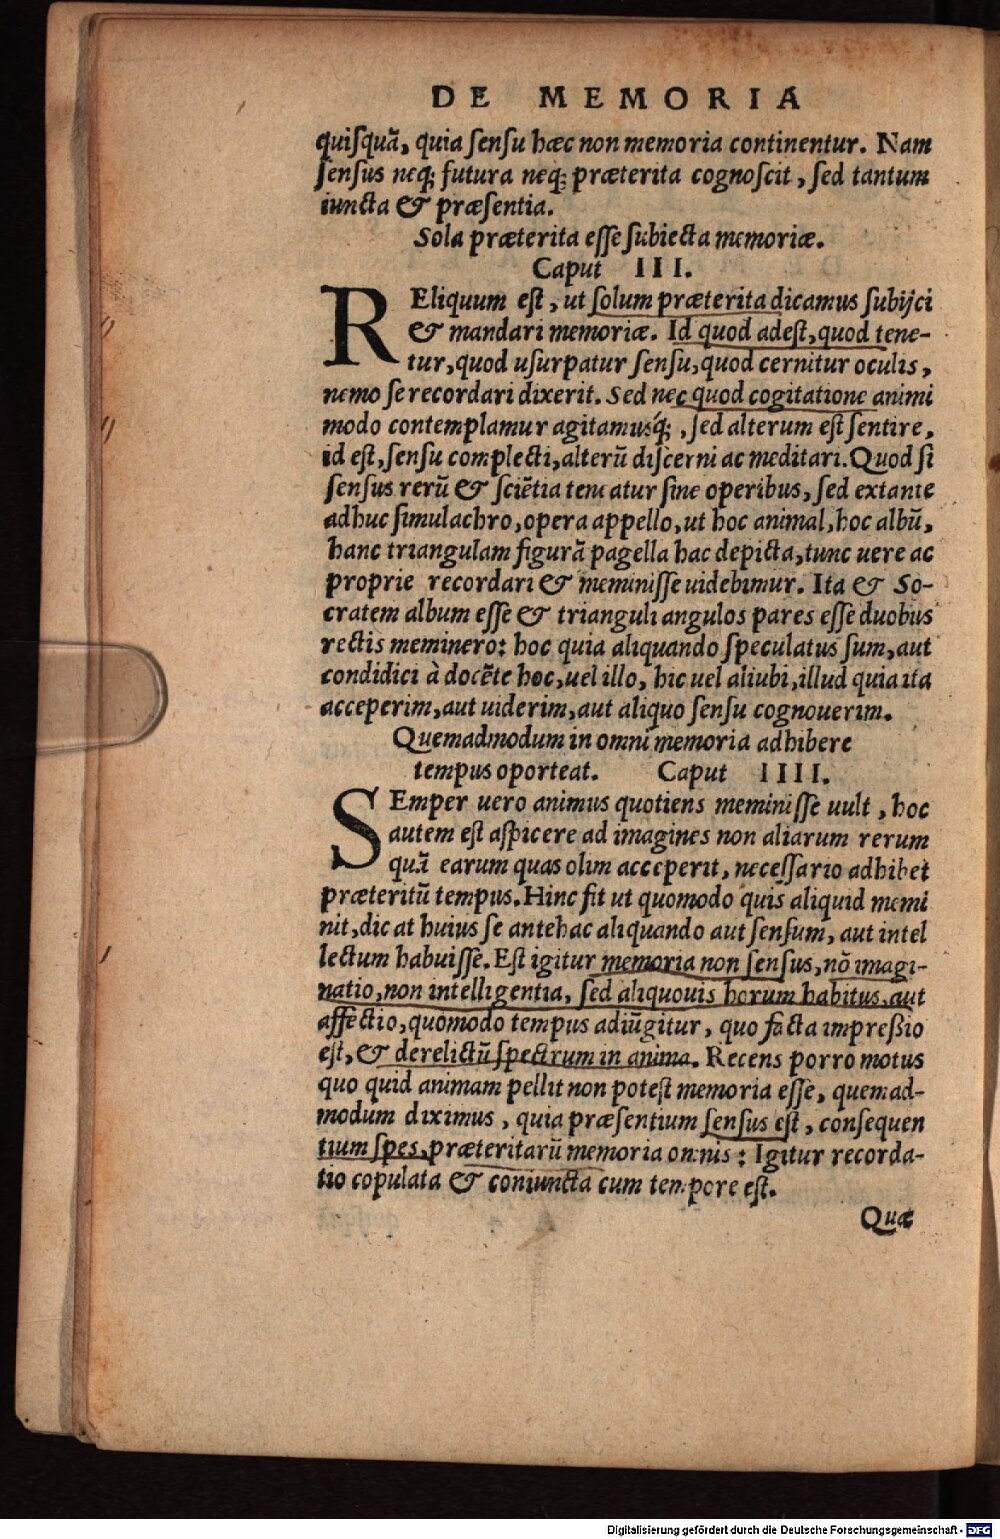 DE MEMORIA
quiſquã, quia ſenſu hæc non memoria continentur. Nam
ſenſus neq; futura neq; præterita cognoſcit, ſed tantum
iuncta & præſentia.
Sola præterita eſſe ſubiecta memoriæ.
Caput III.
REliquum eſt, ut ſolum præterita dicamus ſubijci
& mandari memoriæ. Id quod adeſt, quod tene-
tur, quod uſurpatur ſenſu, quod cernitur oculis,
nemo ſe recordari dixerit. Sed nec quod cogitatione animi
modo contemplamur agitamusq́;, ſed alterum eſt ſentire,
id eſt, ſenſu complecti, alterũ diſcerni ac meditari. Quod ſi
ſenſus rerũ & ſciẽtia teneatur ſine operibus, ſed extante
adhuc ſimulachro, opera appello, ut hoc animal, hoc albũ,
hanc triangulam figurã pagella hac depicta, tunc uere ac
proprie recordari & meminiſſe uidebimur. Ita & So-
cratem album eſſe & trianguli angulos pares eſſe duobus
rectis meminero: hoc quia aliquando ſpeculatus ſum, aut
condidici à docẽte hoc, uel illo, hic uel aliubi, illud quia ita
acceperim, aut uiderim, aut aliquo ſenſu cognouerim.
Quemadmodum in omni memoria adhibere
tempus oporteat. Caput IIII.
SEmper uero animus quotiens meminiſſe uult, hoc
autem eſt aſpicere ad imagines non aliarum rerum
quã earum quas olim acceperit, neceſſario adhibet
præteritũ tempus. Hinc fit ut quomodo quis aliquid memi
nit, dicat huius ſe antehac aliquando aut ſenſum, aut intel
lectum habuiſſe. Eſt igitur memoria non ſenſus, nõ imagi-
natio, non intelligentia, ſed aliquouis horum habitus, aut
affectio, quomodo tempus adiũgitur, quo facta impreßio
eſt, & derelictũ ſpectrum in anima. Recens porro motus
quo quid animam pellit non poteſt memoria eſſe, quemad-
modum diximus, quia præſentium ſenſus eſt, conſequen
tium ſpes, præteritarũ memoria omnis: Igitur recorda-
tio copulata & coniuncta cum tempore eſt.
Quæ
Digitalisierung gefördert durch die Deutsche Forschungsgemeinschaft - DFG